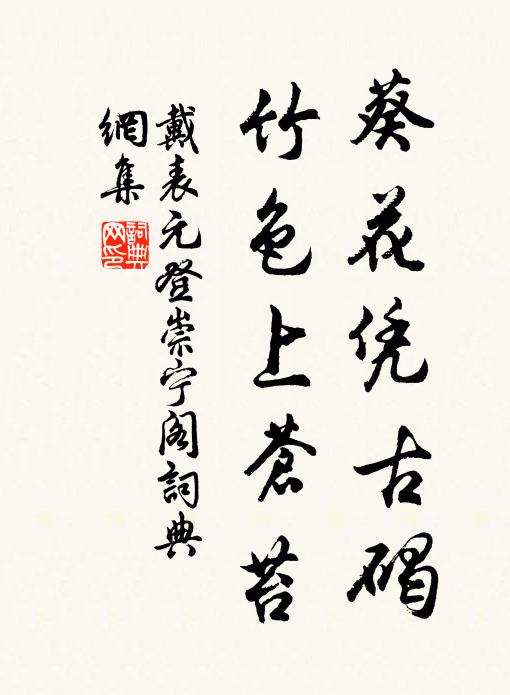 葵花凭古碣
竹色上蒼苔
戴表元登崇宁阁詞典
網集
詞典
网印